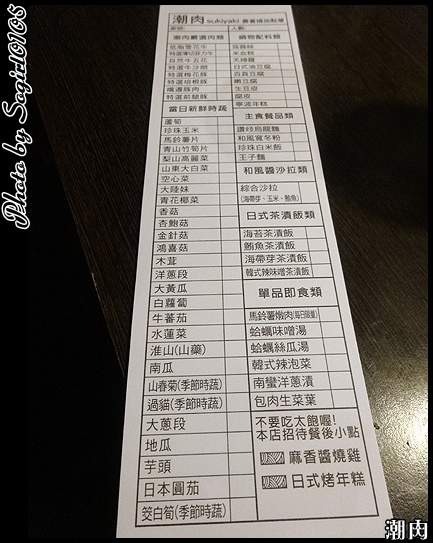 潮肉 sukiyaki 壽喜燒加點單
桌號: 人數:
潮肉嚴選肉類
自然牛五花
特選牛沙朗
特選梅花豚
特選培根豚
爐邊豚肉
特選前腿豚
當日新鮮時蔬
蘆筍
珍珠玉米
馬鈴薯片
青山竹筍片
梨山高麗菜
山東大白菜
空心菜
大陸妹
青花椰菜
香菇
杏鮑菇
金針菇
鴻喜菇
木茸
洋蔥段
大黃瓜
白蘿蔔
牛番茄
水蓮菜
淮山(山藥)
南瓜
山春菊(季節時蔬)
過貓(季節時蔬)
大蔥段
地瓜
芋頭
日本圓茄
筊白筍(季節時蔬)
鍋物配料類
米血糕
天婦羅
日式油豆腐
百頁豆腐
嫩豆腐
生豆皮
腐皮
寧波年糕
主食餐品類
讚岐烏龍麵
和風寬冬粉
珍珠白米飯
王子麵
和風醬沙拉類
綜合沙拉
(海帶芽、玉米、鮪魚)
日式茶漬飯類
海苔茶漬飯
鮪魚茶漬飯
海帶芽茶漬飯
韓式辣味噌茶漬飯
單品即食類
馬鈴薯燉肉(每日限量)
蛤蠣味噌湯
蛤蠣絲瓜湯
韓式辣泡菜
南蠻洋蔥漬
包肉生菜葉
不要吃太飽喔!
本店招待餐後小點
麻香醬燒雞
日式烤年糕
Photo by Sagit0105
潮肉